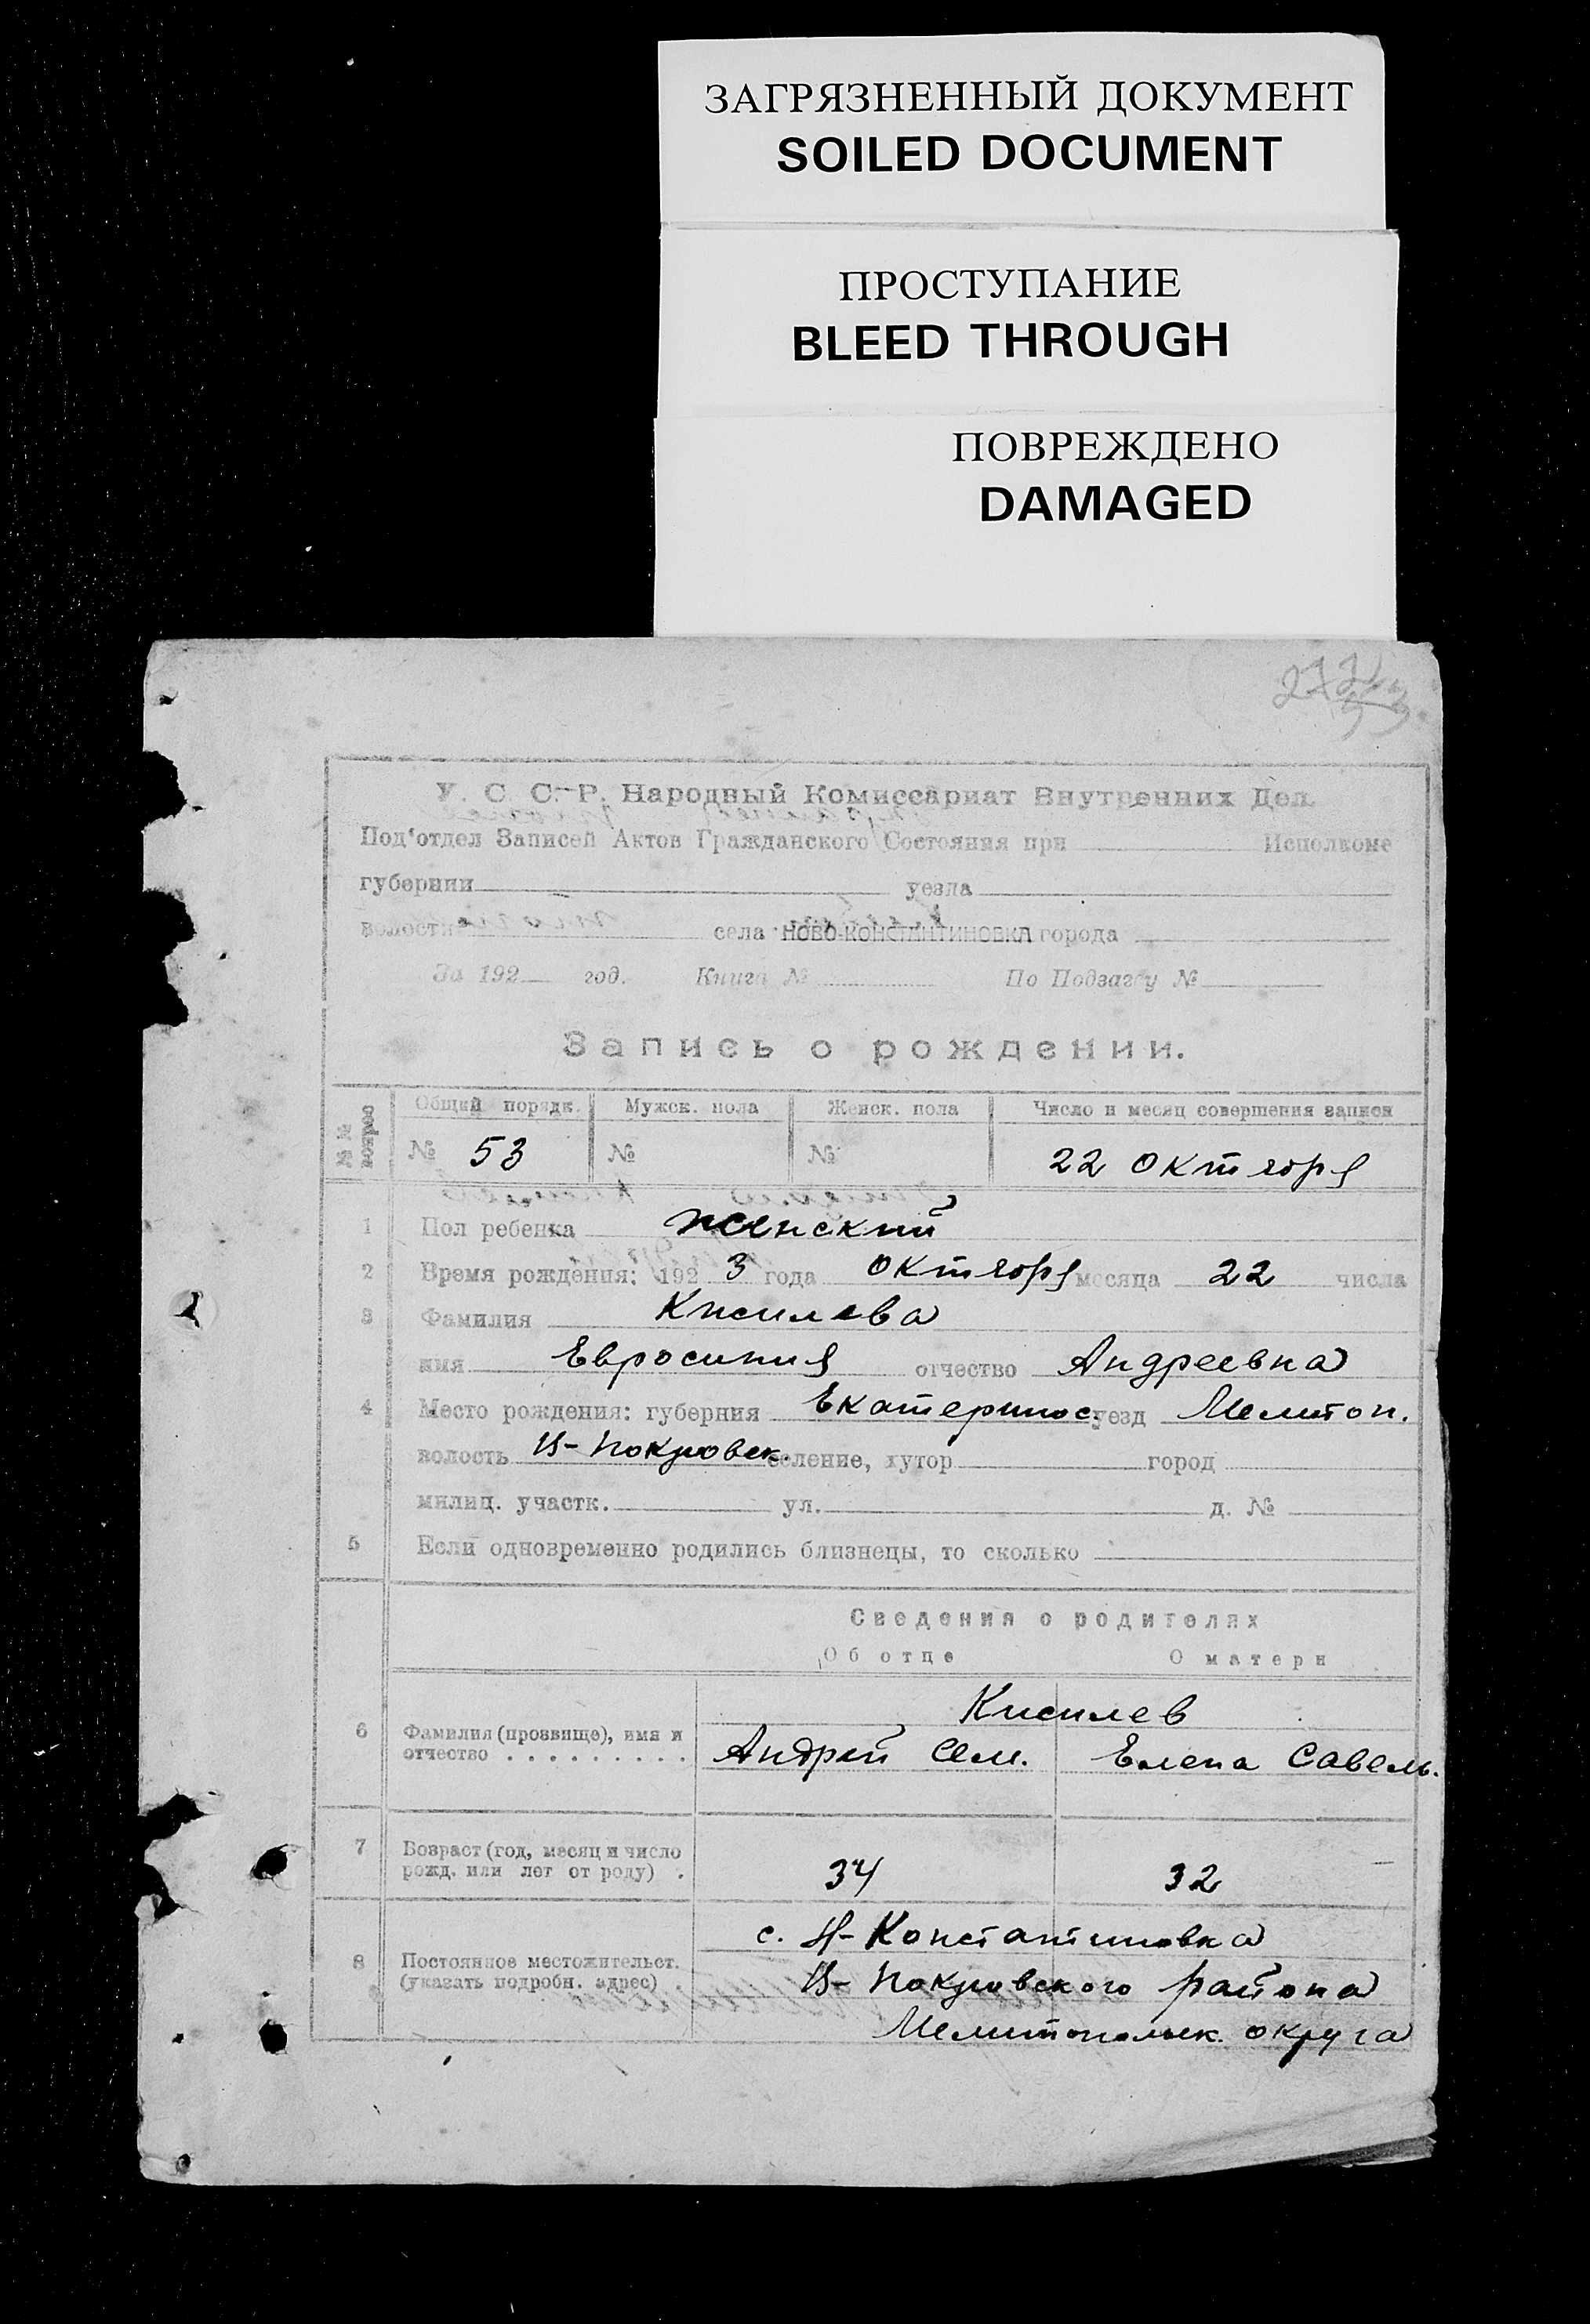 ЗАГРЯЗНЕННЫЙ ДОКУМЕНТ
SOILED DOCUMENT
ПРОСТУПАНИЕ
BLEED THROUGH
ПОВРЕЖДЕНО
DAMAGED
У. С. С. Р. Народный Комиссариат Внутренних Дел.
Под'отдел Записей Актов Гражданского Состояния при Исполкоме
губернии уезда
волости села НОВО-КОНСТАНТИНОВКА города
За 192 год. Книга № По Подзагсу №
Запись о рождении.
№№ вопрос Общий порядк. Мужск. пола Женск. пола Число и месяц совершения записи
№ 53 № № 22 Октября
1 Пол ребенка женский
2 Время рождения: 192 3 года Октября месяца 22 числа
3 Фамилия Кисилева
имя Евросиния отчество Андреевна
4 Место рождения: губерния Екатеринос. уезд Мелитоп.
волость В-Покровск. селение, хутор город
милиц. участк. ул. д. №
5 Если одновременно родились близнецы, то сколько
Сведения о родителях
Об отце О матери
Кисилев
6 Фамилия (прозвище), имя и
отчество . . . . . . . . . Андрей Сем. Елена Савель.
7 Возраст (год, месяц и число
рожд. или лет от роду) . 34 32
с. Н-Константиновка
8 Постоянное местожительст.
(указать подробн. адрес) В-Покровского района
Мелитопольск. округа